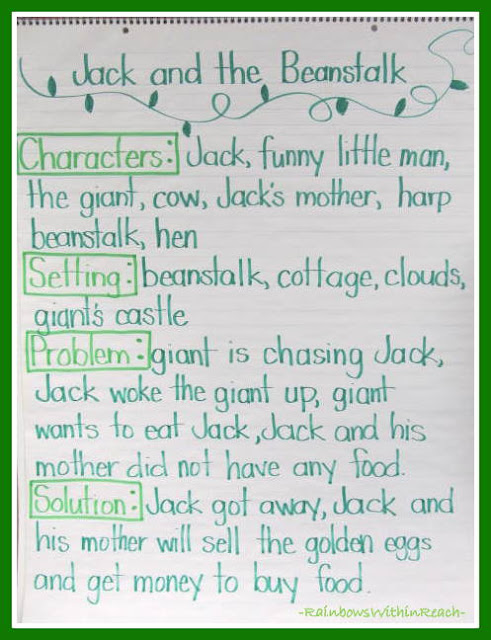 Jack and the Beanstalk
Characters: Jack, funny little man,
the giant, cow, Jack's mother, harp
beanstalk, hen
Setting: beanstalk, cottage, clouds,
giant's castle
Problem: giant is chasing Jack,
Jack woke the giant up, giant
wants to eat Jack, Jack and his
mother did not have any food.
Solution: Jack got away, Jack and
his mother will sell the golden eggs
and get money to buy food.
-RainbowsWithinReach-